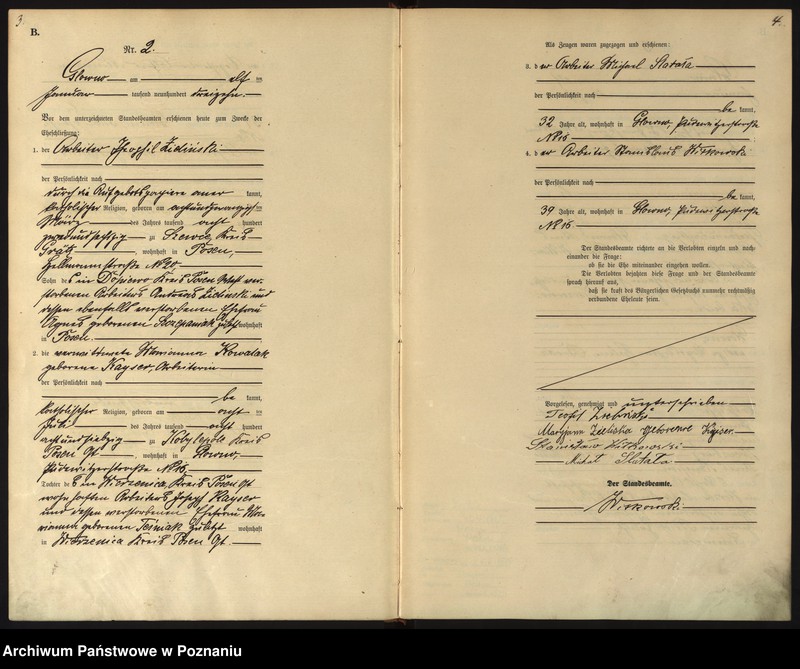 3.
B.
Nr. 2.
Głowno am elf ten
Januar tausend neunhundert dreizehn.
Vor dem unterzeichneten Standesbeamten erschienen heute zum Zwecke der
Eheschließung:
1. der Arbeiter Theophil Zieliński
der Persönlichkeit nach
durch die Aufgebotspapiere aner kannt,
katholischer Religion, geboren am achtundzwanzigsten
März des Jahres tausend acht hundert
zweiundsechzig zu Szewce, Kreis
Grätz, wohnhaft in Posen,
straße No 20
Sohn des in Dopiewo Kreis Posen West ver-
storbenen Arbeiters Zielinski und
dessen ebenfalls verstorbenen Ehefrau
Agnes geborenen Szczepaniak zuletzt wohnhaft
in Posen.
2. die verwittwete Marianna Kowalak
geborene Kayser, Arbeiterin
der Persönlichkeit nach
be kannt,
katholischer Religion, geboren am acht ten
Juli des Jahres tausend acht hundert
achtundsiebzig zu Kobylepole Kreis
Posen Ost, wohnhaft in Głowno,
Pudewitzerstraße No 15,
Tochter des in Wierzenica, Kreis Posen Ost
wohnhaften Arbeiters Joseph Kayser
und dessen verstorbenen Ehefrau Ma-
rianna geborenen Tesniak zuletzt wohnhaft
in Wierzenica Kreis Posen Ost.
4.
Als Zeugen waren zugezogen und erschienen:
3. d er Arbeiter Michael Slatała
der Persönlichkeit nach
be kannt,
32 Jahre alt, wohnhaft in Głowno, Pudewitzerstraße
No 15
4. d er Arbeiter Stanislaus Witkowski
der Persönlichkeit nach
be kannt,
39 Jahre alt, wohnhaft in Głowno, Pudewitzerstraße
No 16.
Der Standesbeamte richtete an die Verlobten einzeln und nach-
einander die Frage:
ob sie die Ehe miteinander eingehen wollen.
Die Verlobten bejahten diese Frage und der Standesbeamte
sprach hierauf aus,
daß sie kraft des Bürgerlichen Gesetzbuchs nunmehr rechtmäßig
verbundene Eheleute seien.
Vorgelesen, genehmigt und unterschrieben
Teofil Zieliński
Maryjanna Zielińska geborene Kajser.
Stanisław Witkowski
Michał Slatała
Der Standesbeamte.
Witkowski
Archiwum Państwowe w Poznaniu